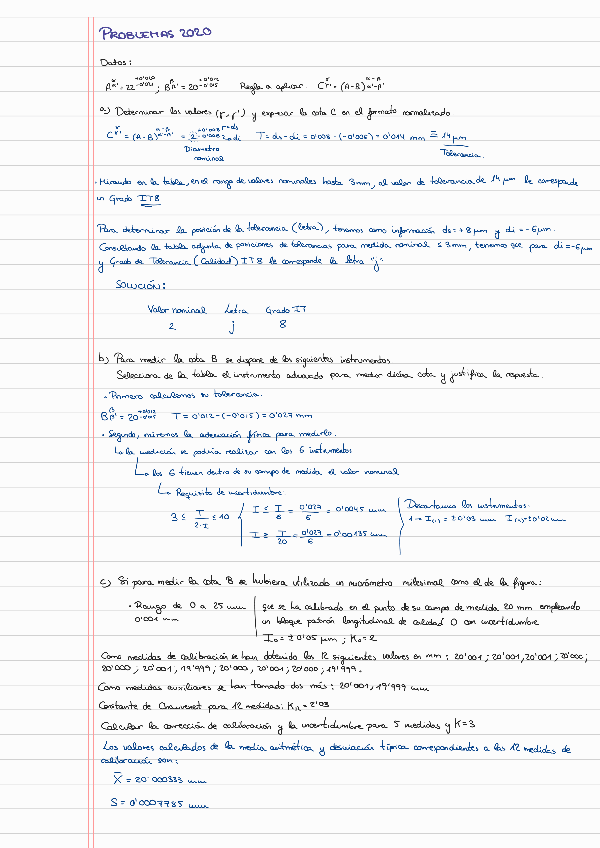 PROBLEMAS 2020
Datos:
A α α' = 22 +0'020 ; B β β' = 20 +0'012 -0'015 Regla a aplicar C γ γ' = (A-B) α-β α'-β'
a) Determinar los valores (γ, γ') y expresar la cota C en el formato normalizado
C γ γ' = (A-B) α-β α'-β' = 2 +0'008 -0'006 T = ds - di = 0'008 - (-0'006) = 0'014 mm ≡ 14 μm
Diámetro nominal Tolerancia.
· Mirando en la tabla, en el rango de valores nominales hasta 3mm, al valor de tolerancia de 14 μm le corresponde
un Grado IT8
Para determinar la posición de la tolerancia (letra), tenemos como información ds=+8μm y di=-6μm.
Consultando la tabla adjunta de posiciones de tolerancias para medida nominal ≤ 3mm, tenemos que para di=-6μm
y Grado de Tolerancia (Calidad) IT8 le corresponde la letra "j"
SOLUCIÓN:
Valor nominal Letra Grado IT
2 j 8
b) Para medir la cota B se dispone de los siguientes instrumentos
Selecciona de la tabla el instrumento adecuado para medir dicha cota y justifica la respuesta.
· Primero calculamos su tolerancia.
B β β' = 20 +0'012 -0'015 T = 0'012 - (-0'015) = 0'027 mm
· Segundo, miramos la adecuación física para medirlo.
↳ la medición se podría realizar con los 6 instrumentos
↳ los 6 tienen dentro de su campo de medida el valor nominal
↳ Requisito de incertidumbre
3 ≤ T/2·I ≤ 10 I ≤ T/6 = 0'027/6 = 0'0045 mm Descartamos los instrumentos.
I ≥ T/20 = 0'027/6 = 0'00135 mm
c) Si para medir la cota B se hubiera utilizado un micrómetro milesimal como el de la figura:
· Rango de 0 a 25 mm que se ha calibrado en el punto de su campo de medida 20 mm empleando
0'001 mm un bloque patrón longitudinal de calidad 0 con incertidumbre
I₀ = ±0'05 μm ; K₀ = 2
Como medidas de calibración se han obtenido los 12 siguientes valores en mm: 20'001 ; 20'001, 20'001 ; 20'000 ;
20'000 , 20'001 , 19'999 ; 20'000 , 20'001 ; 20'000 ; 19'999 .
Como medidas auxiliares se han tomado dos más: 20'001, 19'999 mm
Constante de Chauvenet para 12 medidas: K = 2'03
Calcular la corrección de calibración y la incertidumbre para 5 medidas y K=3
Los valores calculados de la media aritmética y desviación típica correspondientes a las 12 medidas de
calibración son:
X̄ = 20'000333 mm
S = 0'0007785 mm